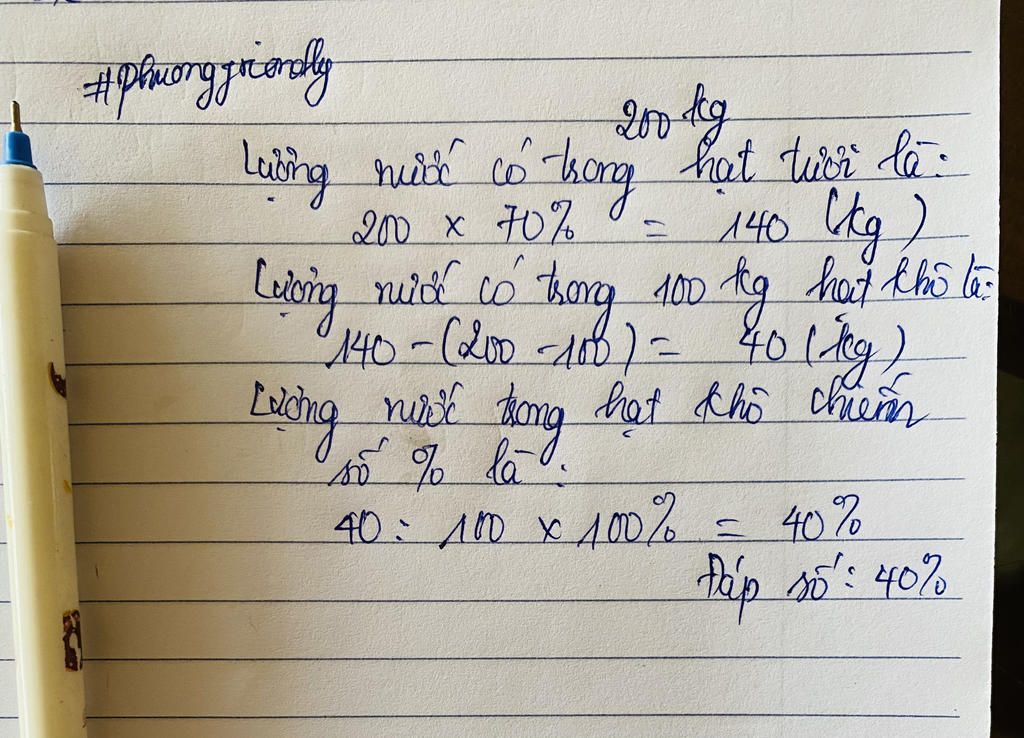 #phuongfriendly
200 kg
Lượng nước có trong hạt tươi là:
200 x 70% = 140 (kg)
Lượng nước có trong 100 kg hạt khô là:
140 - (200 - 100) = 40 (kg)
Lượng nước trong hạt khô chiếm
số % là:
40 : 100 x 100% = 40%
Đáp số: 40%